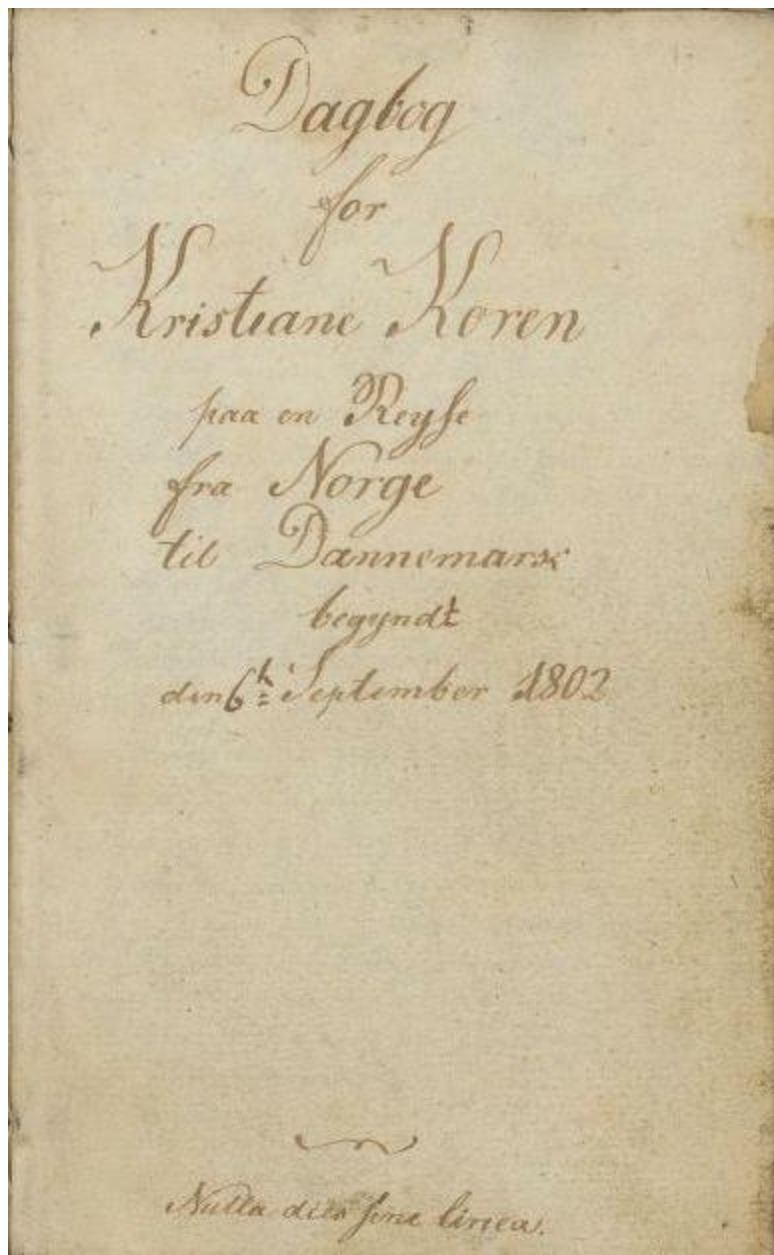 Dagbog
for
Kristiane Koren
paa en Reyse
fra Norge
til Dannemark
begyndt
den 6th September 1802
Nulla dies sine linea.